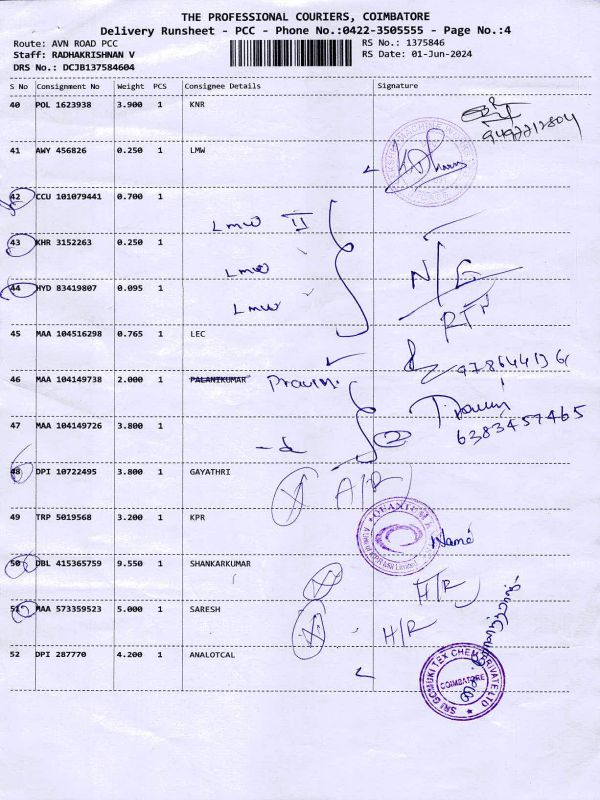 THE PROFESSIONAL COURIERS, COIMBATORE
Delivery Runsheet - PCC - Phone No.:0422-3505555 - Page No.:4
Route: AVN ROAD PCC
RS No.: 1375846
Staff: RADHAKRISHNAN V
RS Date: 01-Jun-2024
DRS No.: DCJB137584604
S No Consignment No Weight PCS Consignee Details Signature
40 POL 1623938 3.900 1 KNR
41 AWY 456826 0.250 1 LMW
42 CCU 101079441 0.700 1
Lmw II
43 KHR 3152263 0.250 1
Lmw
N/C
44 HYD 83419807 0.095 1
Lmw
RTN
45 MAA 104516298 0.765 1 LEC
46 MAA 104149738 2.000 1 PALANIKUMAR Pravin.
47 MAA 104149726 3.800 1
6383457465
-d 2
48 DPI 10722495 3.800 1 GAYATHRI A/R
49 TRP 5019568 3.200 1 KPR
50 DBL 415365759 9.550 1 SHANKARKUMAR H/R
51 MAA 573359523 5.000 1 SARESH H/R
52 DPI 287770 4.200 1 ANALOTCAL
COIMBATORE